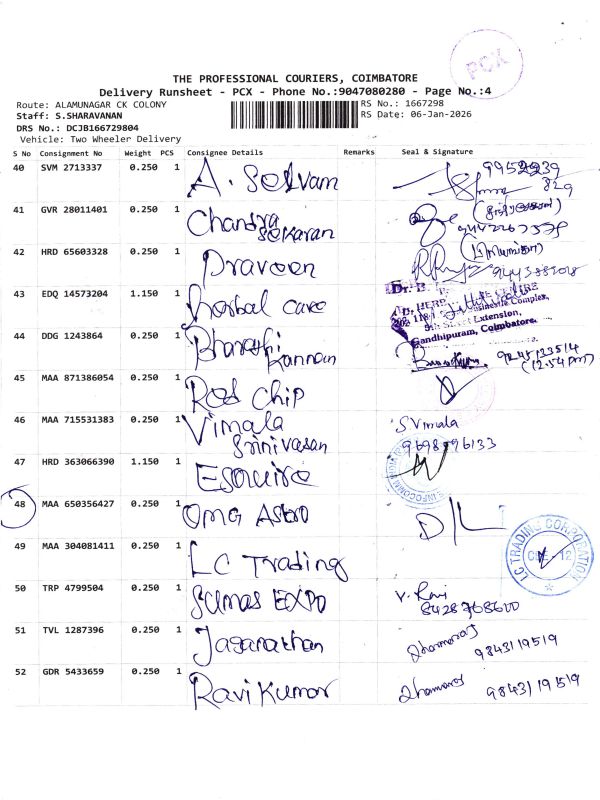 PCX
THE PROFESSIONAL COURIERS, COIMBATORE
Delivery Runsheet - PCX - Phone No.:9047080280 - Page No.:4
Route: ALAMUNAGAR CK COLONY
RS No.: 1667298
Staff: S.SHARAVANAN
RS Date: 06-Jan-2026
DRS No.: DCJB166729804
Vehicle: Two Wheeler Delivery
S No Consignment No Weight PCS Consignee Details Remarks Seal & Signature
40 SVM 2713337 0.250 1 A. Selvam
829
41 GVR 28011401 0.250 1 Chandra
Sekaran
42 HRD 65603328 0.250 1 Praveen
43 EDQ 14573204 1.150 1 Herbal care
Extension,
Gandhipuram, Coimbatore.
44 DDG 1243864 0.250 1 Bharathi
Kannan
(12.54 pm)
45 MAA 871386054 0.250 1 Ros Chip
46 MAA 715531383 0.250 1 Vimala
Srinivasan
S Vimala
47 HRD 363066390 1.150 1 Esquire
48 MAA 650356427 0.250 1 OMG Astro
D/L
49 MAA 304081411 0.250 1 LC Trading
LC TRADING CORPORATION
CBE - 12
50 TRP 4799504 0.250 1 Sumas EXPO V. Ravi
8428768600
51 TVL 1287396 0.250 1 Jaganathan Dharmaraj
9843119519
52 GDR 5433659 0.250 1 Ravi Kumar Dharmaraj 9843119519